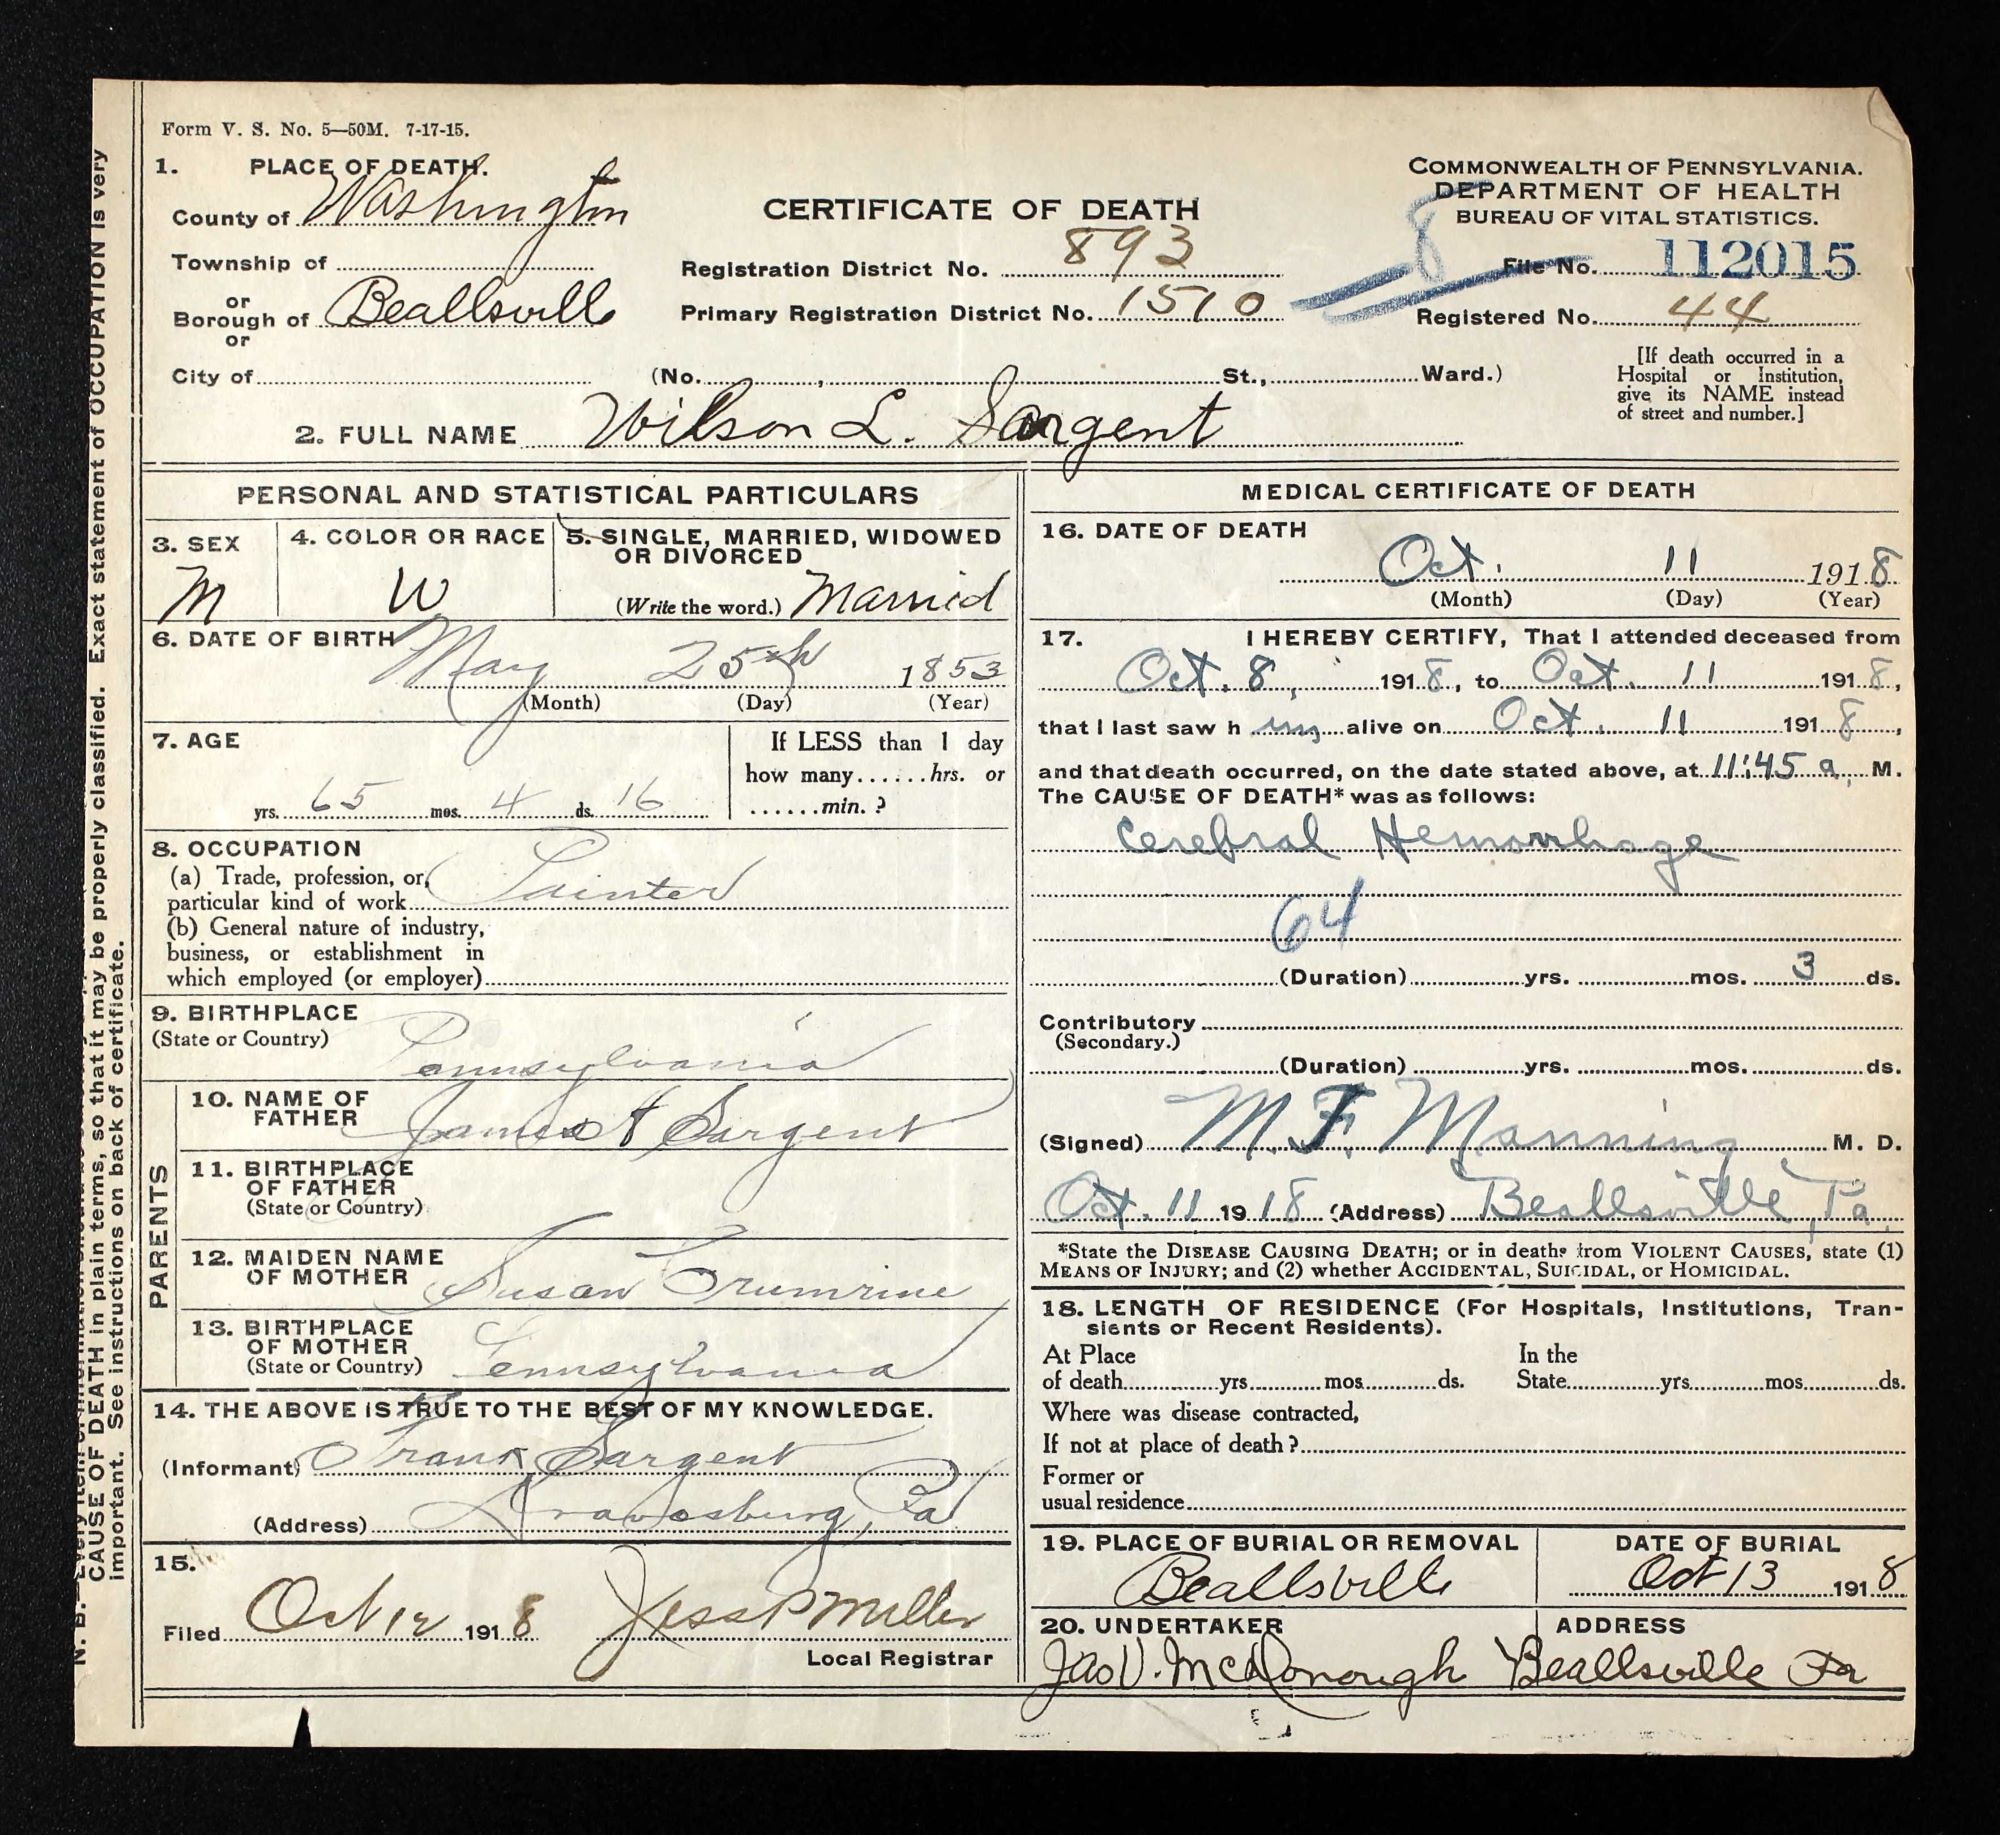 Form V. S. No. 5—50M. 7-17-15.
1. PLACE OF DEATH.
County of Washington
Township of
or
Borough of Beallsville
or
City of
CERTIFICATE OF DEATH
Registration District No. 893
Primary Registration District No. 1510
(No. , St., Ward.)
COMMONWEALTH OF PENNSYLVANIA.
DEPARTMENT OF HEALTH
BUREAU OF VITAL STATISTICS.
8
File No. 112015
Registered No. 44
[If death occurred in a
Hospital or Institution,
give its NAME instead
of street and number.]
2. FULL NAME Wilson L. Sargent
PERSONAL AND STATISTICAL PARTICULARS
3. SEX
M
4. COLOR OR RACE
W
5. SINGLE, MARRIED, WIDOWED
OR DIVORCED
(Write the word.) Married
6. DATE OF BIRTH
May 25th 1853
(Month) (Day) (Year)
7. AGE
yrs. 65 mos. 4 ds. 16
If LESS than 1 day
how many......hrs. or
......min. ?
8. OCCUPATION
(a) Trade, profession, or
particular kind of work Painter
(b) General nature of industry,
business, or establishment in
which employed (or employer)
9. BIRTHPLACE
(State or Country)
Pennsylvania
PARENTS
10. NAME OF
FATHER James Sargent
11. BIRTHPLACE
OF FATHER
(State or Country)
12. MAIDEN NAME
OF MOTHER Susan Crumrine
13. BIRTHPLACE
OF MOTHER
(State or Country) Pennsylvania
14. THE ABOVE IS TRUE TO THE BEST OF MY KNOWLEDGE.
(Informant) Frank Sargent
(Address) Dravosburg, Pa
15.
Filed Oct 12 1918 Jess P Miller
Local Registrar
MEDICAL CERTIFICATE OF DEATH
16. DATE OF DEATH
Oct. 11 1918
(Month) (Day) (Year)
17. I HEREBY CERTIFY, That I attended deceased from
Oct. 8, 1918, to Oct. 11 1918,
that I last saw him alive on Oct. 11 1918,
and that death occurred, on the date stated above, at 11:45 a. M.
The CAUSE OF DEATH* was as follows:
Cerebral Hemorrhage
64
(Duration) yrs. mos. 3 ds.
Contributory
(Secondary.)
(Duration) yrs. mos. ds.
(Signed) M. F. Manning M. D.
Oct. 11 1918 (Address) Beallsville, Pa.
*State the DISEASE CAUSING DEATH; or in deaths from VIOLENT CAUSES, state (1)
MEANS OF INJURY; and (2) whether ACCIDENTAL, SUICIDAL, or HOMICIDAL.
18. LENGTH OF RESIDENCE (For Hospitals, Institutions, Tran-
sients or Recent Residents).
At Place
of death yrs. mos. ds.
In the
State yrs. mos. ds.
Where was disease contracted,
If not at place of death?
Former or
usual residence
19. PLACE OF BURIAL OR REMOVAL
Beallsville
DATE OF BURIAL
Oct 13 1918
20. UNDERTAKER
Jas V. McDonough
ADDRESS
Beallsville Pa
CAUSE OF DEATH in plain terms, so that it may be properly classified. Exact statement of OCCUPATION is very
important. See instructions on back of certificate.